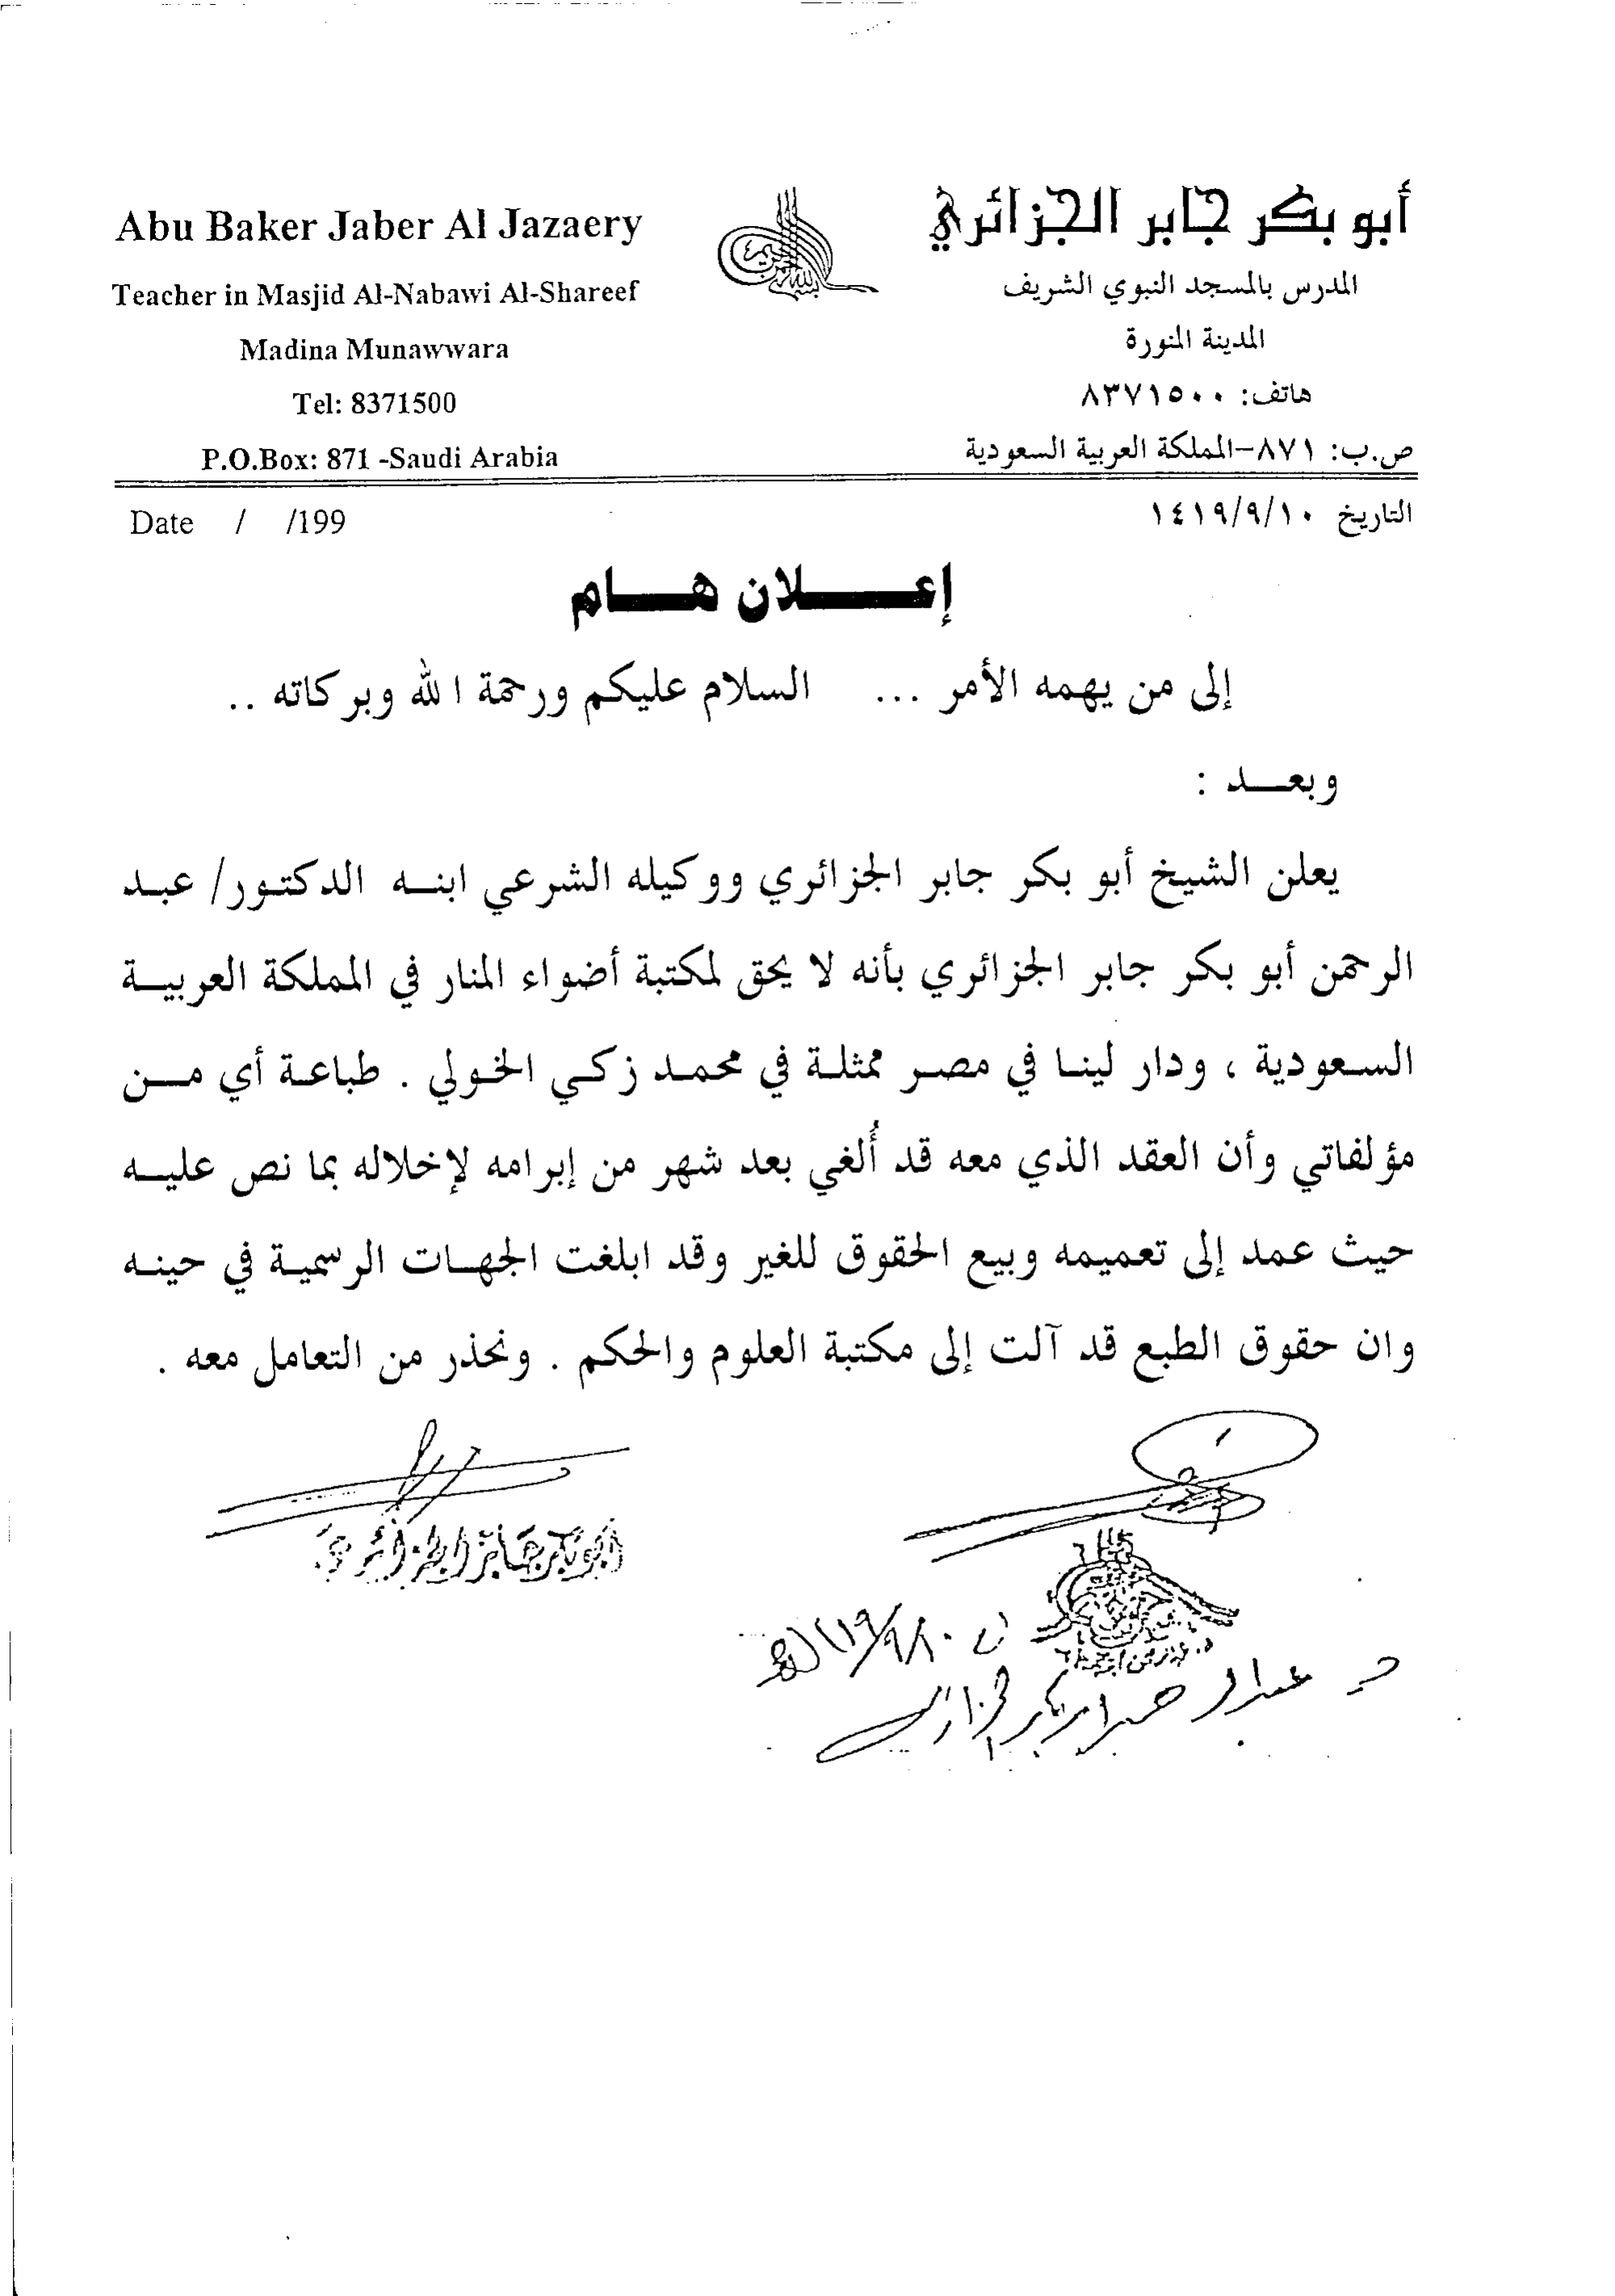 أبو بكر جابر الجزائري
المدرس بالمسجد النبوي الشريف
المدينة المنورة
هاتف: ٨٣٧١٥٠٠
ص.ب: ٨٧١-المملكة العربية السعودية
Abu Baker Jaber Al Jazaery
Teacher in Masjid Al-Nabawi Al-Shareef
Madina Munawwara
Tel: 8371500
P.O.Box: 871 -Saudi Arabia
التاريخ ١٤١٩/٩/١٠
Date / /199
إعـــلان هـــام
إلى من يهمه الأمر ... السلام عليكم ورحمة الله وبركاته ..
وبعـــد :
يعلن الشيخ أبو بكر جابر الجزائري ووكيله الشرعي ابنـه الدكتـور/ عبـد
الرحمن أبو بكر جابر الجزائري بأنه لا يحق لمكتبة أضواء المنار في المملكة العربيـة
السـعودية ، ودار لينـا في مصـر ممثلـة في محمـد زكـي الخـولي . طباعـة أي مـن
مؤلفاتي وأن العقد الذي معه قد أُلغي بعد شهر من إبرامه لإخلاله بما نص عليـه
حيث عمد إلى تعميمه وبيع الحقوق للغير وقد ابلغت الجهـات الرسميـة في حينـه
وان حقوق الطبع قد آلت إلى مكتبة العلوم والحكم . ونحذر من التعامل معه .
أبو بكر جابر الجزائري